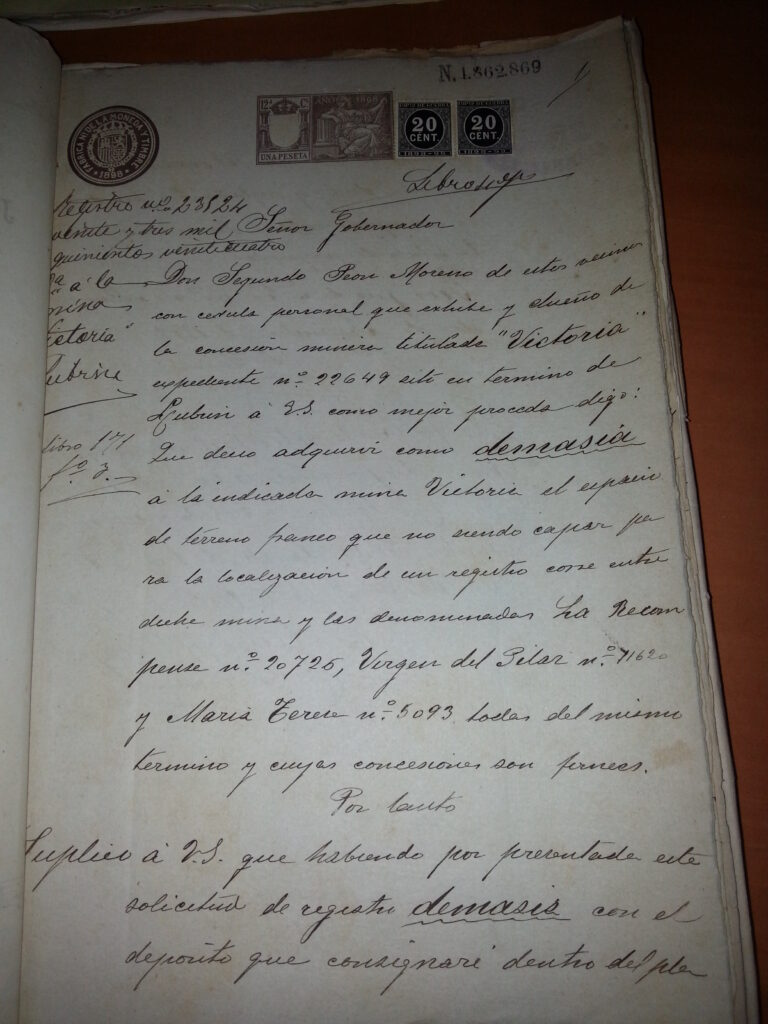 N. 1.862.869
FABRICA DE LA MONEDA Y TIMBRE
1898
12ª C.
AÑO DE 1898
UNA PESETA
20
CENT.
1898-99
20
CENT.
1898-99
Registro nº 23524
veinte y tres mil
quinientos veinticuatro
Dª á la
mina
Victoria"
Lubrin
Libro 171
fº 3.
Señor Gobernador
Don Segundo Peon Moreno de estos vecinos
con cedula personal que exhibe y dueño de
la concesión minera titulada "Victoria"
expediente nº 22649 sito en termino de
Lubrin á V.S. como mejor proceda digo:
Que deseo adquirir como demasía
á la indicada mina Victoria el espacio
de terreno franco que no siendo capaz pa
ra la localización de un registro corre entre
dicha mina y las denominadas La Recom
pensa nº 20725, Virgen del Pilar nº 11620
y Maria Teresa nº 5093 todas del mismo
termino y cuyas concesiones son firmes.
Por tanto
Suplico á V.S. que habiendo por presentada esta
solicitud de registro demasia con el
deposito que consignaré dentro del pla